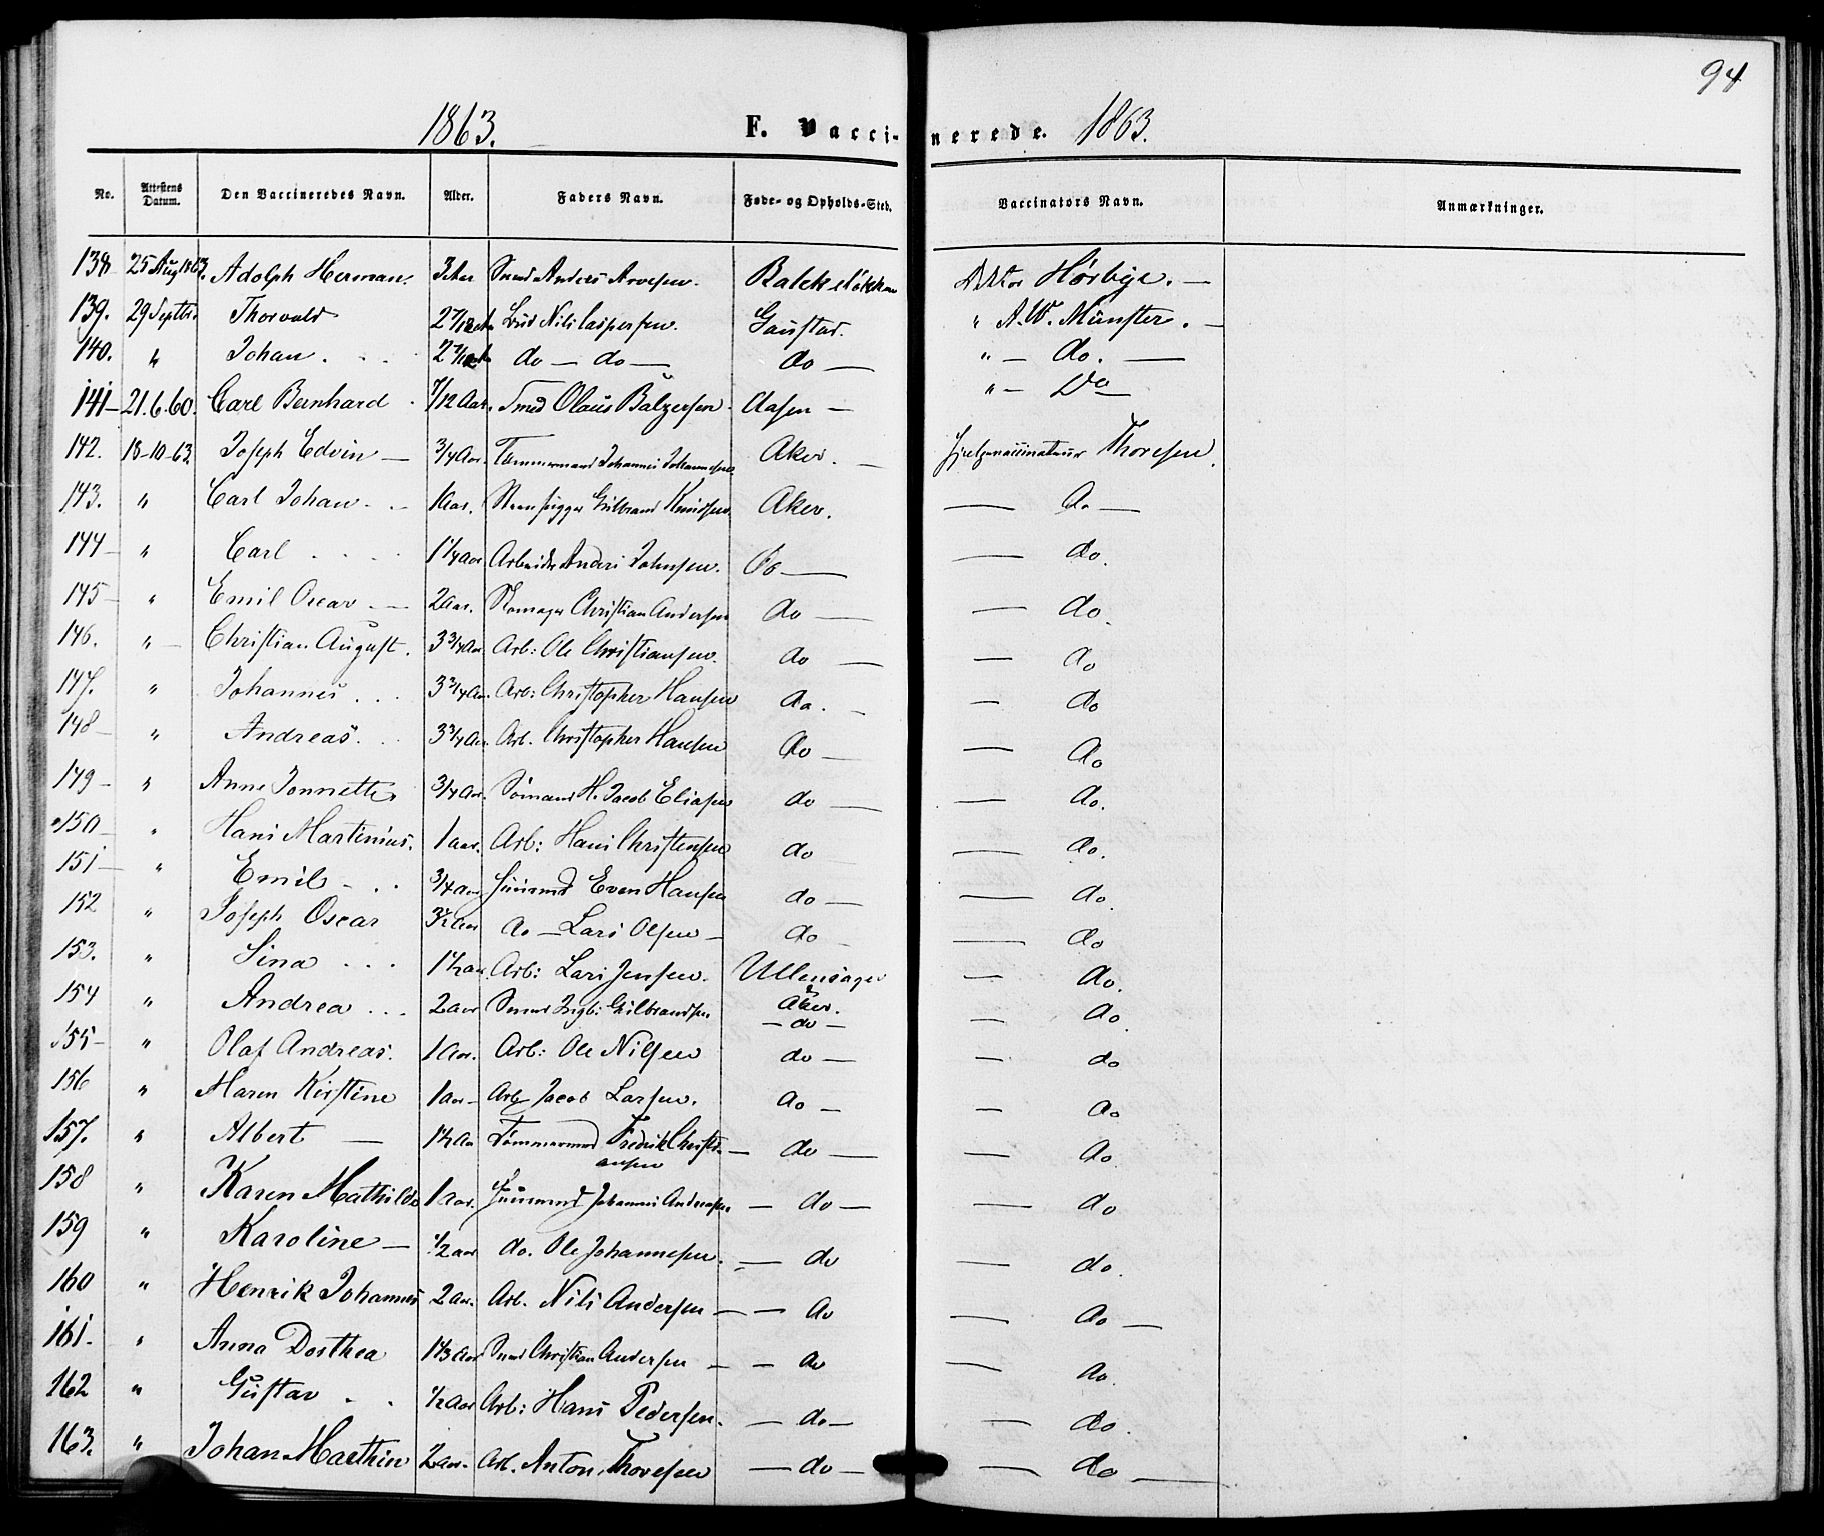 94
1863. F. Vacci- nerede. 1863.
No. Attestens Datum. Den Vaccineredes Navn. Alder. Faders Navn. Føde- og Opholds-Sted. Vaccinators Navn. Anmærkninger.
138 25 Aug 1863. Adolph Herman. 3 Aar Smed Anders Arvesen. Bakkeløkken Doktor Hørbye. —
139. 29 Septbr. Thorvald 2 7/12 Nils Caspersen. Gaustad. " A.W. Münster. —
140. " Johan. 2 7/12 do — do — do — " — do. —
141 — 21.6.60. Carl Bernhard 7/12 Aar. Smed Olaus Balzersen. Aasen — " — Do —
142. 18-10-63 Joseph Edvin — 3/4 Aar. Tømmermand Johannes Johannesen Aker. — Hjelpevaccinateur Thoresen.
143. " Carl Johan. — 1 Aar. Gulbrand Knudsen Aker. — do —
144 — " Carl 1 1/4 Aar Arbeider Anders Johnsen. do — — do.
145 — " Emil Oscar. — 2 Aar. Skomager Christian Andersen do — — do.
146. " — Christian August. 3 3/4 Aar Arb: Ole Christiansen. do — — do
147. " Johannes 3 3/4 Aar. Arb: Christopher Hansen do. — — do
148 — " Andreas. 3 3/4 Aar. Arb. Christopher Hansen do — — do
149 — " Anne Jonnette 3/4 Aar. Sømand H. Jacob Eliasen do — — do.
150 — " Hans Martinius. 1 aar. Arb: Hans Christensen do — — do.
151 — " Emil — 3/4 aar Huusmd Even Hansen do — — do.
152 " Joseph Oscar 3 1/2 Aar do — Lars Olsen — do — — do
153. " Sina 1 1/2 aar. Arb: Lars Jensen. Ullensager — do.
154 " Andrea 2 aar Smed Ingb: Gulbrandsen & Aker. — do.
— do —
155 — " Olaf Andreas. 1 Aar. Arb: Ole Nilsen do — — do
156 " Maren Kirstine 1 aar — Arb Jacob Larsen. do — — do
157. " Albert — 1 1/2 Aar Tømmermd Fredrik Christi- — do — — do
ansen
158 " Karen Mathilde 1 aar. Huusmand Johannes Andersen — do — — do
159 " Karoline — 1/2 aar do. Ole Johannesen. — do — do.
160 " Henrik Johannes 2 aar. Arb. Nils Andersen — — do — do —
161. " Anna Dorthea 1 1/3 Aar Smed Christian Andersen — — do — do.
162 " Gustav 1/2 Aar Arb: Hans Pedersen. — do — — do.
163. " Johan Marthin 2 Aar. Arb. Anton Thoresen — do — — do —